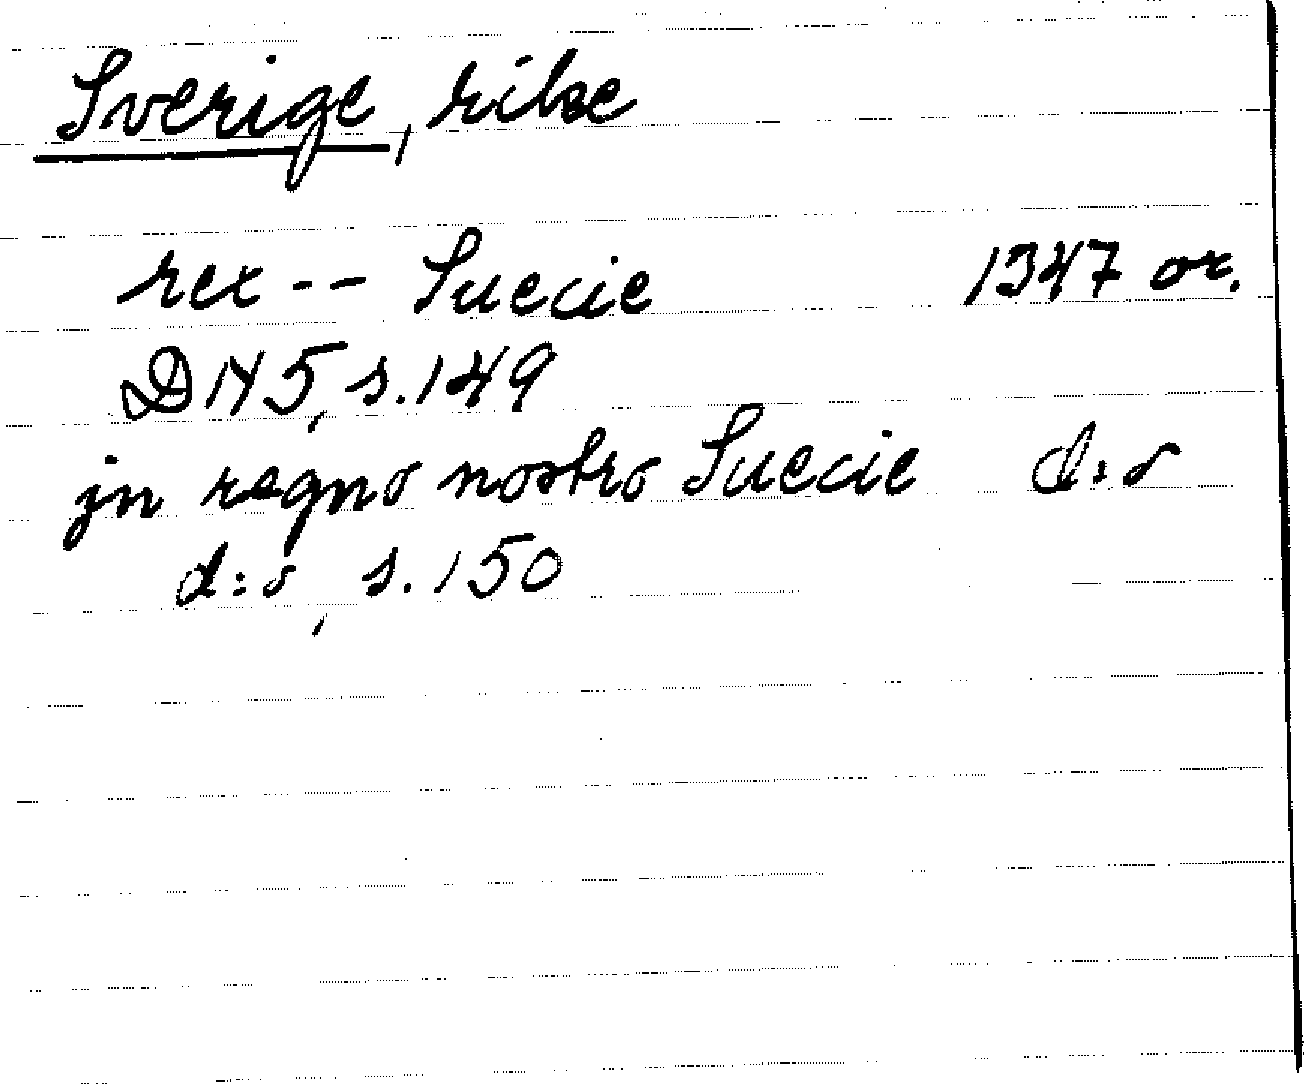 Sverige, rike
rex -- Suecie 1347 or.
DN 5, s. 149
jn regno nostro Suecie d:o
d:o, s. 150